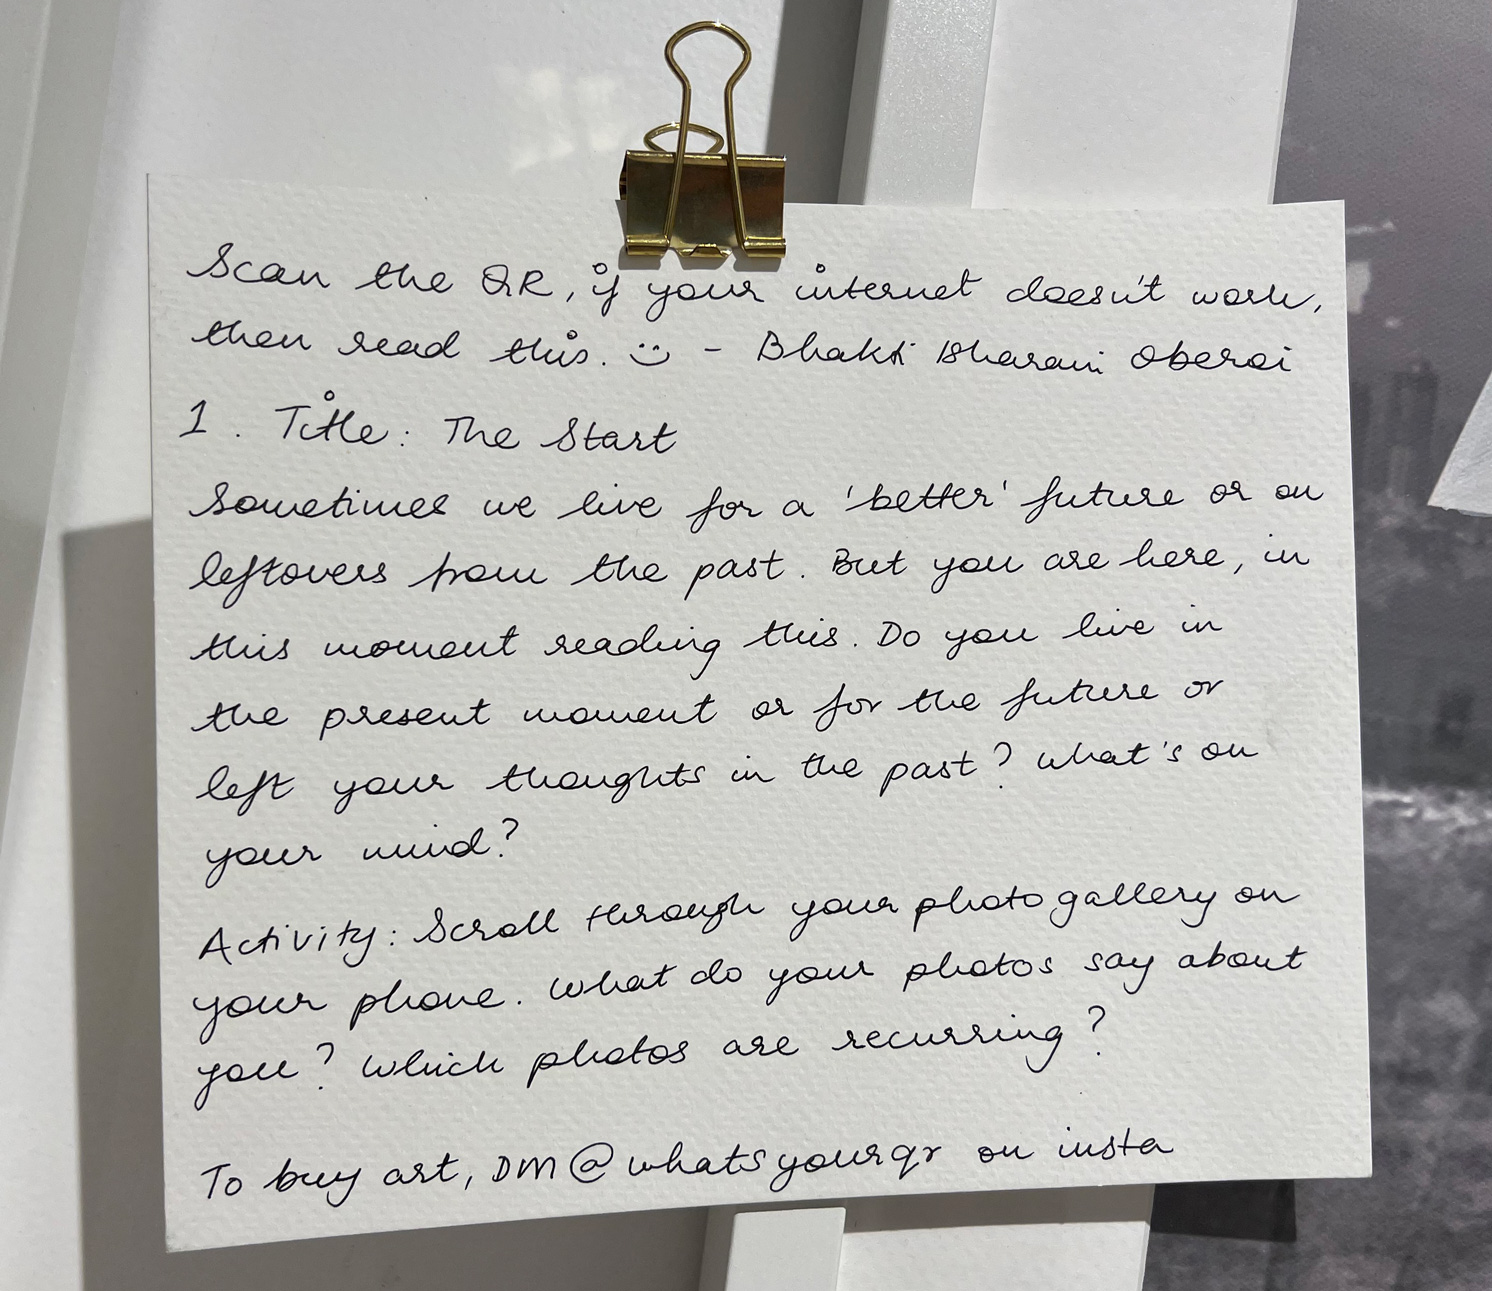 Scan the QR, if your internet doesn't work,
then read this. :) - Bhakti Bharani Oberoi
1. Title: The Start
Sometimes we live for a 'better' future or on
leftovers from the past. But you are here, in
this moment reading this. Do you live in
the present moment or for the future or
left your thoughts in the past? What's on
your mind?
Activity: Scroll through your photo gallery on
your phone. What do your photos say about
you? Which photos are recurring?
To buy art, DM @whatsyourqr on insta